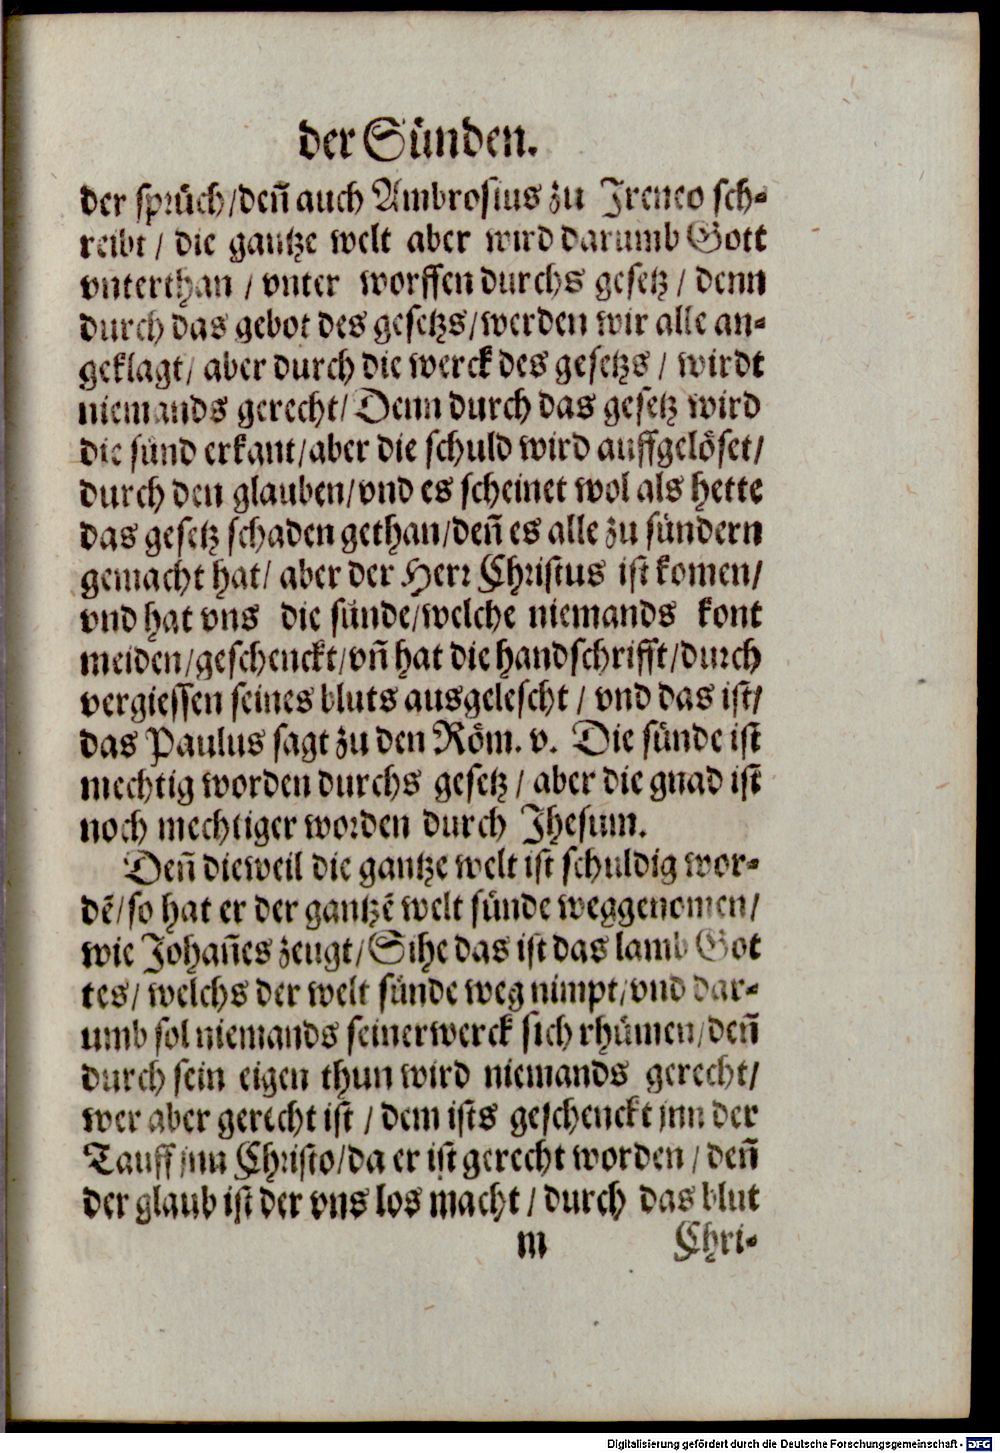 der Sünden.
der sprüch/deñ auch Ambrosius zu Ireneo sch-
reibt / die gantze welt aber wird darumb Gott
vnterthan / vnter worffen durchs gesetz / denn
durch das gebot des gesetzs/werden wir alle an-
geklagt/ aber durch die werck des gesetzs / wirdt
niemands gerecht/ Denn durch das gesetz wird
die sünd erkant/aber die schuld wird auffgelöset/
durch den glauben/vnd es scheinet wol als hette
das gesetz schaden gethan/deñ es alle zu sündern
gemacht hat/ aber der Herr Christus ist komen/
vnd hat vns die sünde/welche niemands kont
meiden/geschenckt/vñ hat die handschrifft/durch
vergiessen seines bluts ausgelescht / vnd das ist/
das Paulus sagt zu den Röm. v. Die sünde ist
mechtig worden durchs gesetz / aber die gnad ist
noch mechtiger worden durch Jhesum.
Deñ dieweil die gantze welt ist schuldig wor-
dē/so hat er der gantzē welt sünde weggenomen/
wie Johañes zeugt/Sihe das ist das lamb Got
tes/ welchs der welt sünde weg nimpt/vnd dar-
umb sol niemands seinerwerck sich rhümen/deñ
durch sein eigen thun wird niemands gerecht/
wer aber gerecht ist / dem ists geschenckt jnn der
Tauff jnn Christo/da er ist gerecht worden / deñ
der glaub ist der vns los macht / durch das blut
m Chri-
Digitalisierung gefördert durch die Deutsche Forschungsgemeinschaft - DFG